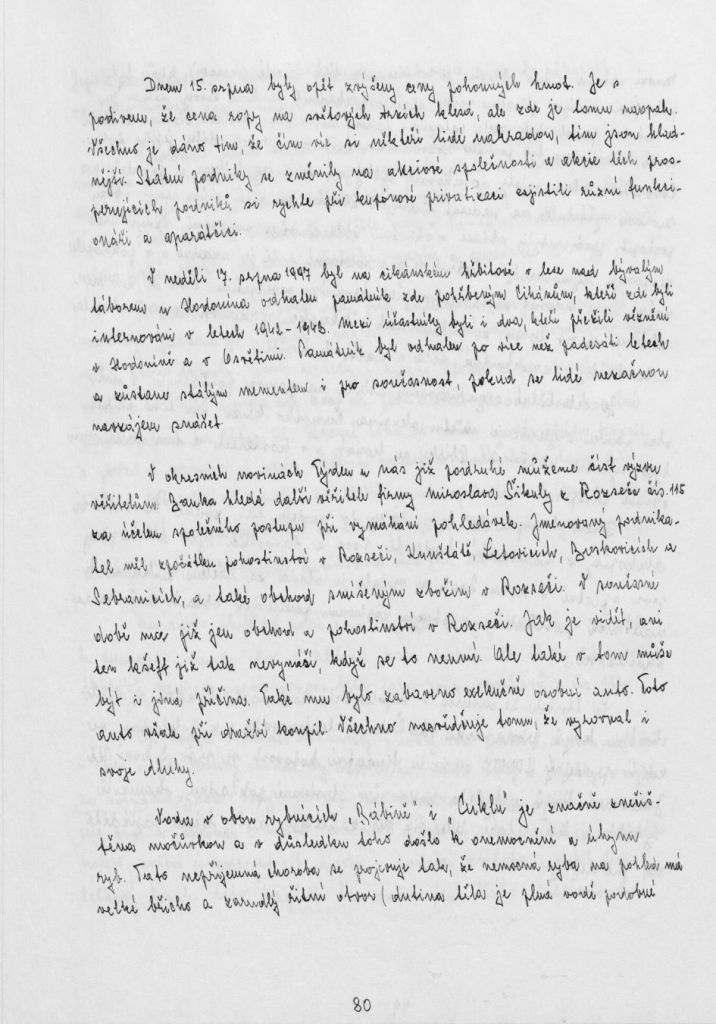 Dnem 15. srpna byly opět zvýšeny ceny pohonných hmot. Je s
podivem, že cena ropy na světových trzích klesá, ale zde je tomu naopak.
Všechno je dáno tím, že čím víc si někteří lidé nakradou, tím jsou hlad-
nější. Státní podniky se změnily na akciové společnosti a akcie těch pros-
perujících podniků si rychle při kupónové privatizaci zajistili různí funkci-
onáři a aparátčíci.
V neděli 17. srpna 1997 byl na cikánském hřbitově v lese nad bývalým
táborem u Hodonína odhalen památník zde pohřbeným Cikánům, kteří zde byli
internováni v letech 1942-1943. Mezi účastníky byli i dva, kteří přežili věznění
v Hodoníně a v Osvětimi. Památník byl odhalen po více než padesáti letech
a zůstane stálým mementem i pro současnost, pokud se lidé nezačnou
navzájem snášet.
V okresních novinách Týden u nás již podruhé můžeme číst výzvu
věřitelům. Banka hledá další věřitele firmy Miroslava Šikuly z Rozseče čís. 115
za účelem společného postupu při vymáhání pohledávek. Jmenovaný podnika-
tel měl zpočátku pohostinství v Rozseči, Kunštátě, Letovicích, Boskovicích a
Sebranicích, a také obchod smíšeným zbožím v Rozseči. V současné
době má již jen obchod a pohostinství v Rozseči. Jak je vidět, ani
ten kšeft již tak nevynáší, když se to neumí. Ale také v tom může
být i jiná příčina. Také mu bylo zabaveno exekučně osobní auto. Toto
auto však při dražbě koupil. Všechno nasvědčuje tomu, že vyrovnal i
svoje dluhy.
Voda v obou rybnících „Bábině" i „Cuklu" je značně znečiš-
těna močůvkou a v důsledku toho došlo k onemocnění a úhynu
ryb. Tato nepříjemná choroba se projevuje tak, že nemocná ryba na pohled má
velké břicho a zarudlý řitní otvor (dutina těla je plná vodě podobné
80